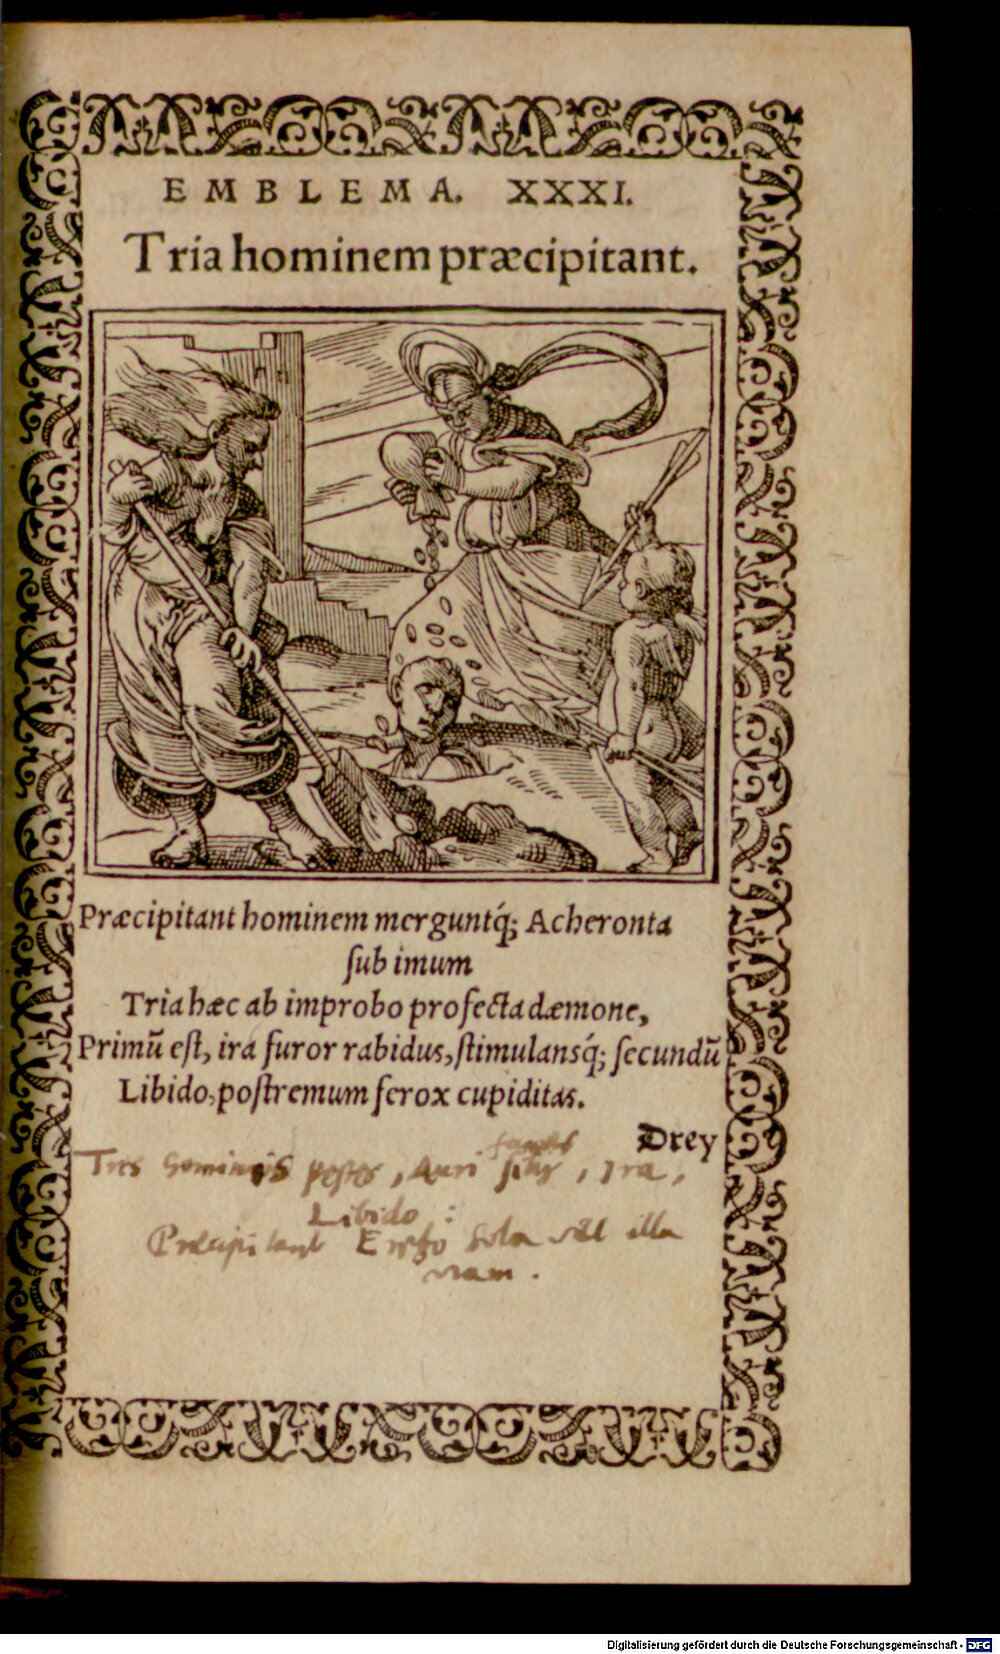 EMBLEMA. XXXI.
Tria hominem præcipitant.
Præcipitant hominem merguntq́; Acheronta
ſub imum
Tria hæc ab improbo profecta dæmone,
Primũ eſt, ira furor rabidus, ſtimulansq́; ſecundũ
Libido, poſtremum ferox cupiditas.
Drey
Tres hominis pestes, Auri sitis, Ira,
Libido :
Præcipitant Ergo sola illa
viam.
Digitalisierung gefördert durch die Deutsche Forschungsgemeinschaft - DFG